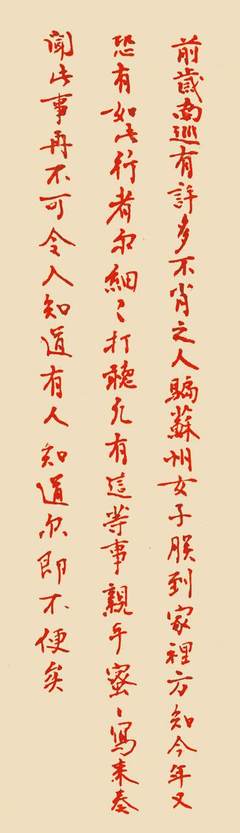 前歲南巡有許多不肖之人騙蘇州女子朕到家裡方知今年又
恐有如此行者尔細〻打聽凡有這等事親手蜜〻寫來奏
聞此事再不可令人知道有人知道尔即不便矣